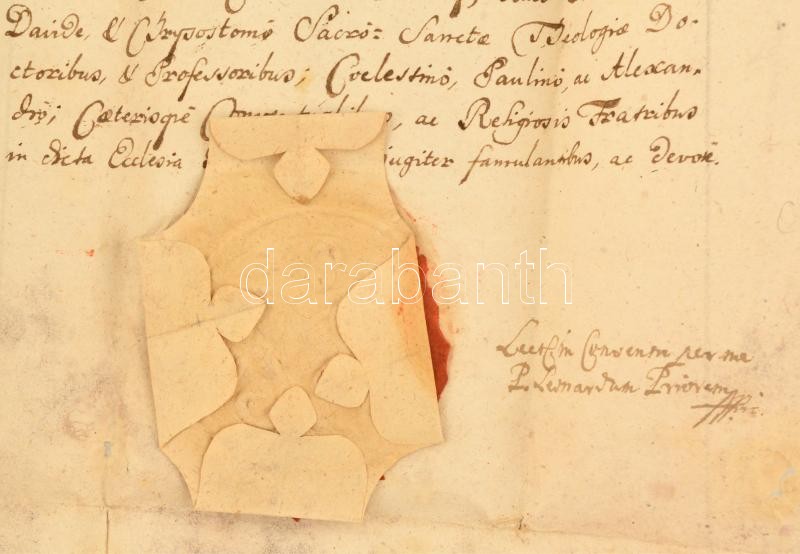 Davide, & Chrysostomo Sacro= Sanctæ Theologiæ Do-
ctoribus, & Professoribus; Coelestino, Paulino, ac Alexan-
dro; Cæterisque , ac Religiosis Fratribus
in dicta Ecclesia jugiter famulantibus, ac devote.
darabanth
per me
P. Leonardum Priorem